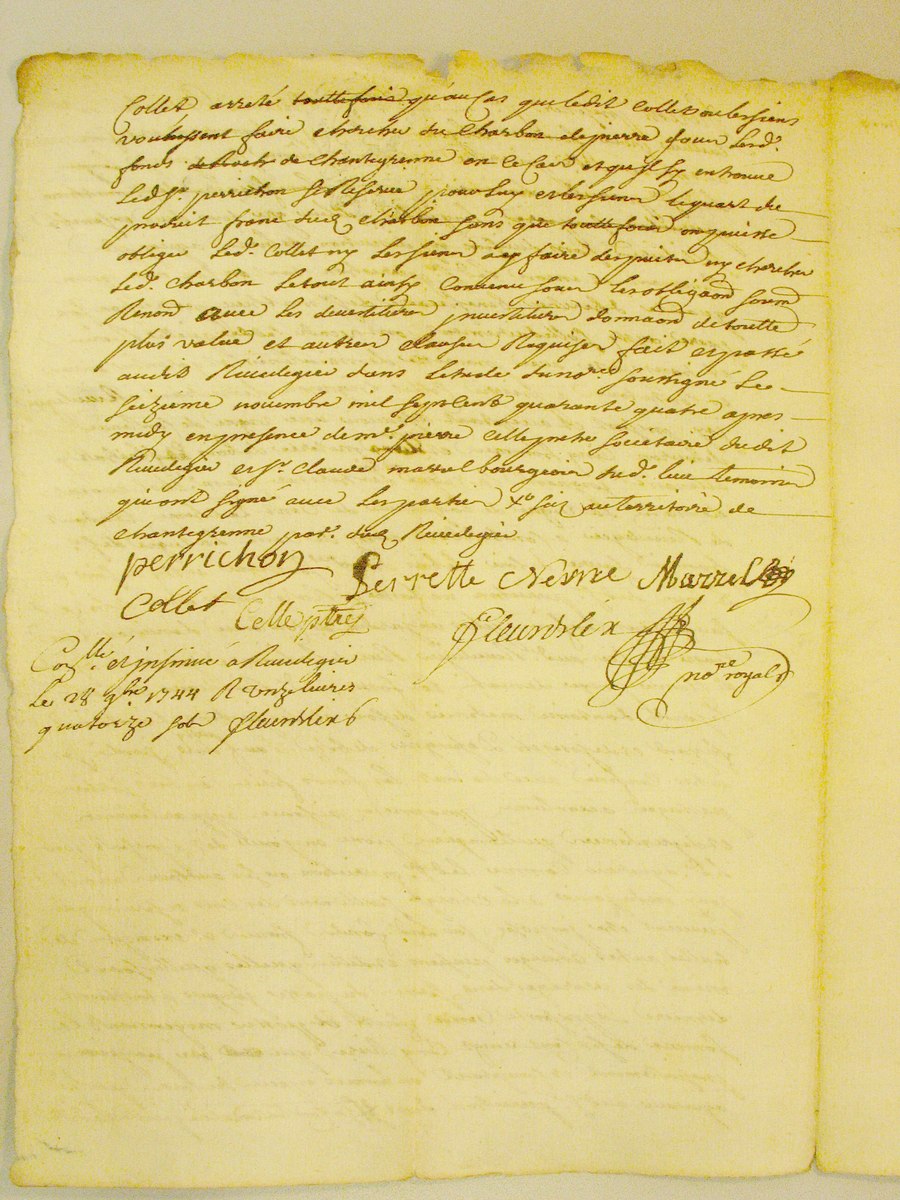 Collet arreté touttefois qu'au cas que ledit Collet ou les siens
voulussent faire chercher du charbon de pierre dans lesd.
fonds de Chantegrenne en ce cas et qu'il s'y en trouve
Led. Sr. perrichon se Réserve pour luy et les siens le quart du
produit franc dud. charbon sans que touttefois on puisse
obliger led. Collet ny les siens a y faire des puits ny chercher
led. charbon le tout ainsy convenu sous les obligaôns soums
Renonô avec les devestiture jnvestiture donnaôn de toutte
plus value et autres clauses Requises fait et passé
audit Rivedegier dans letude du nore. soussigné le
seizieme novembre mil sept cent quarante quatre apres
midy en presence de mr. pierre Celle prêtre societaire dudit
Rivedegier et Sr. Claude marrel bourgeois dud. lieu temoins
qui ont signé avec les parties au territoire de
Chantegrenne par. dud. Rivedegier
perrichon Perrette Nesme Marrel
Collet Celle ptre
fleurdelix
nore royal
Conllé. et jnsinué à Rivedegier
Le 28 9bre. 1744 R onze livres
quatorze sols fleurdelix